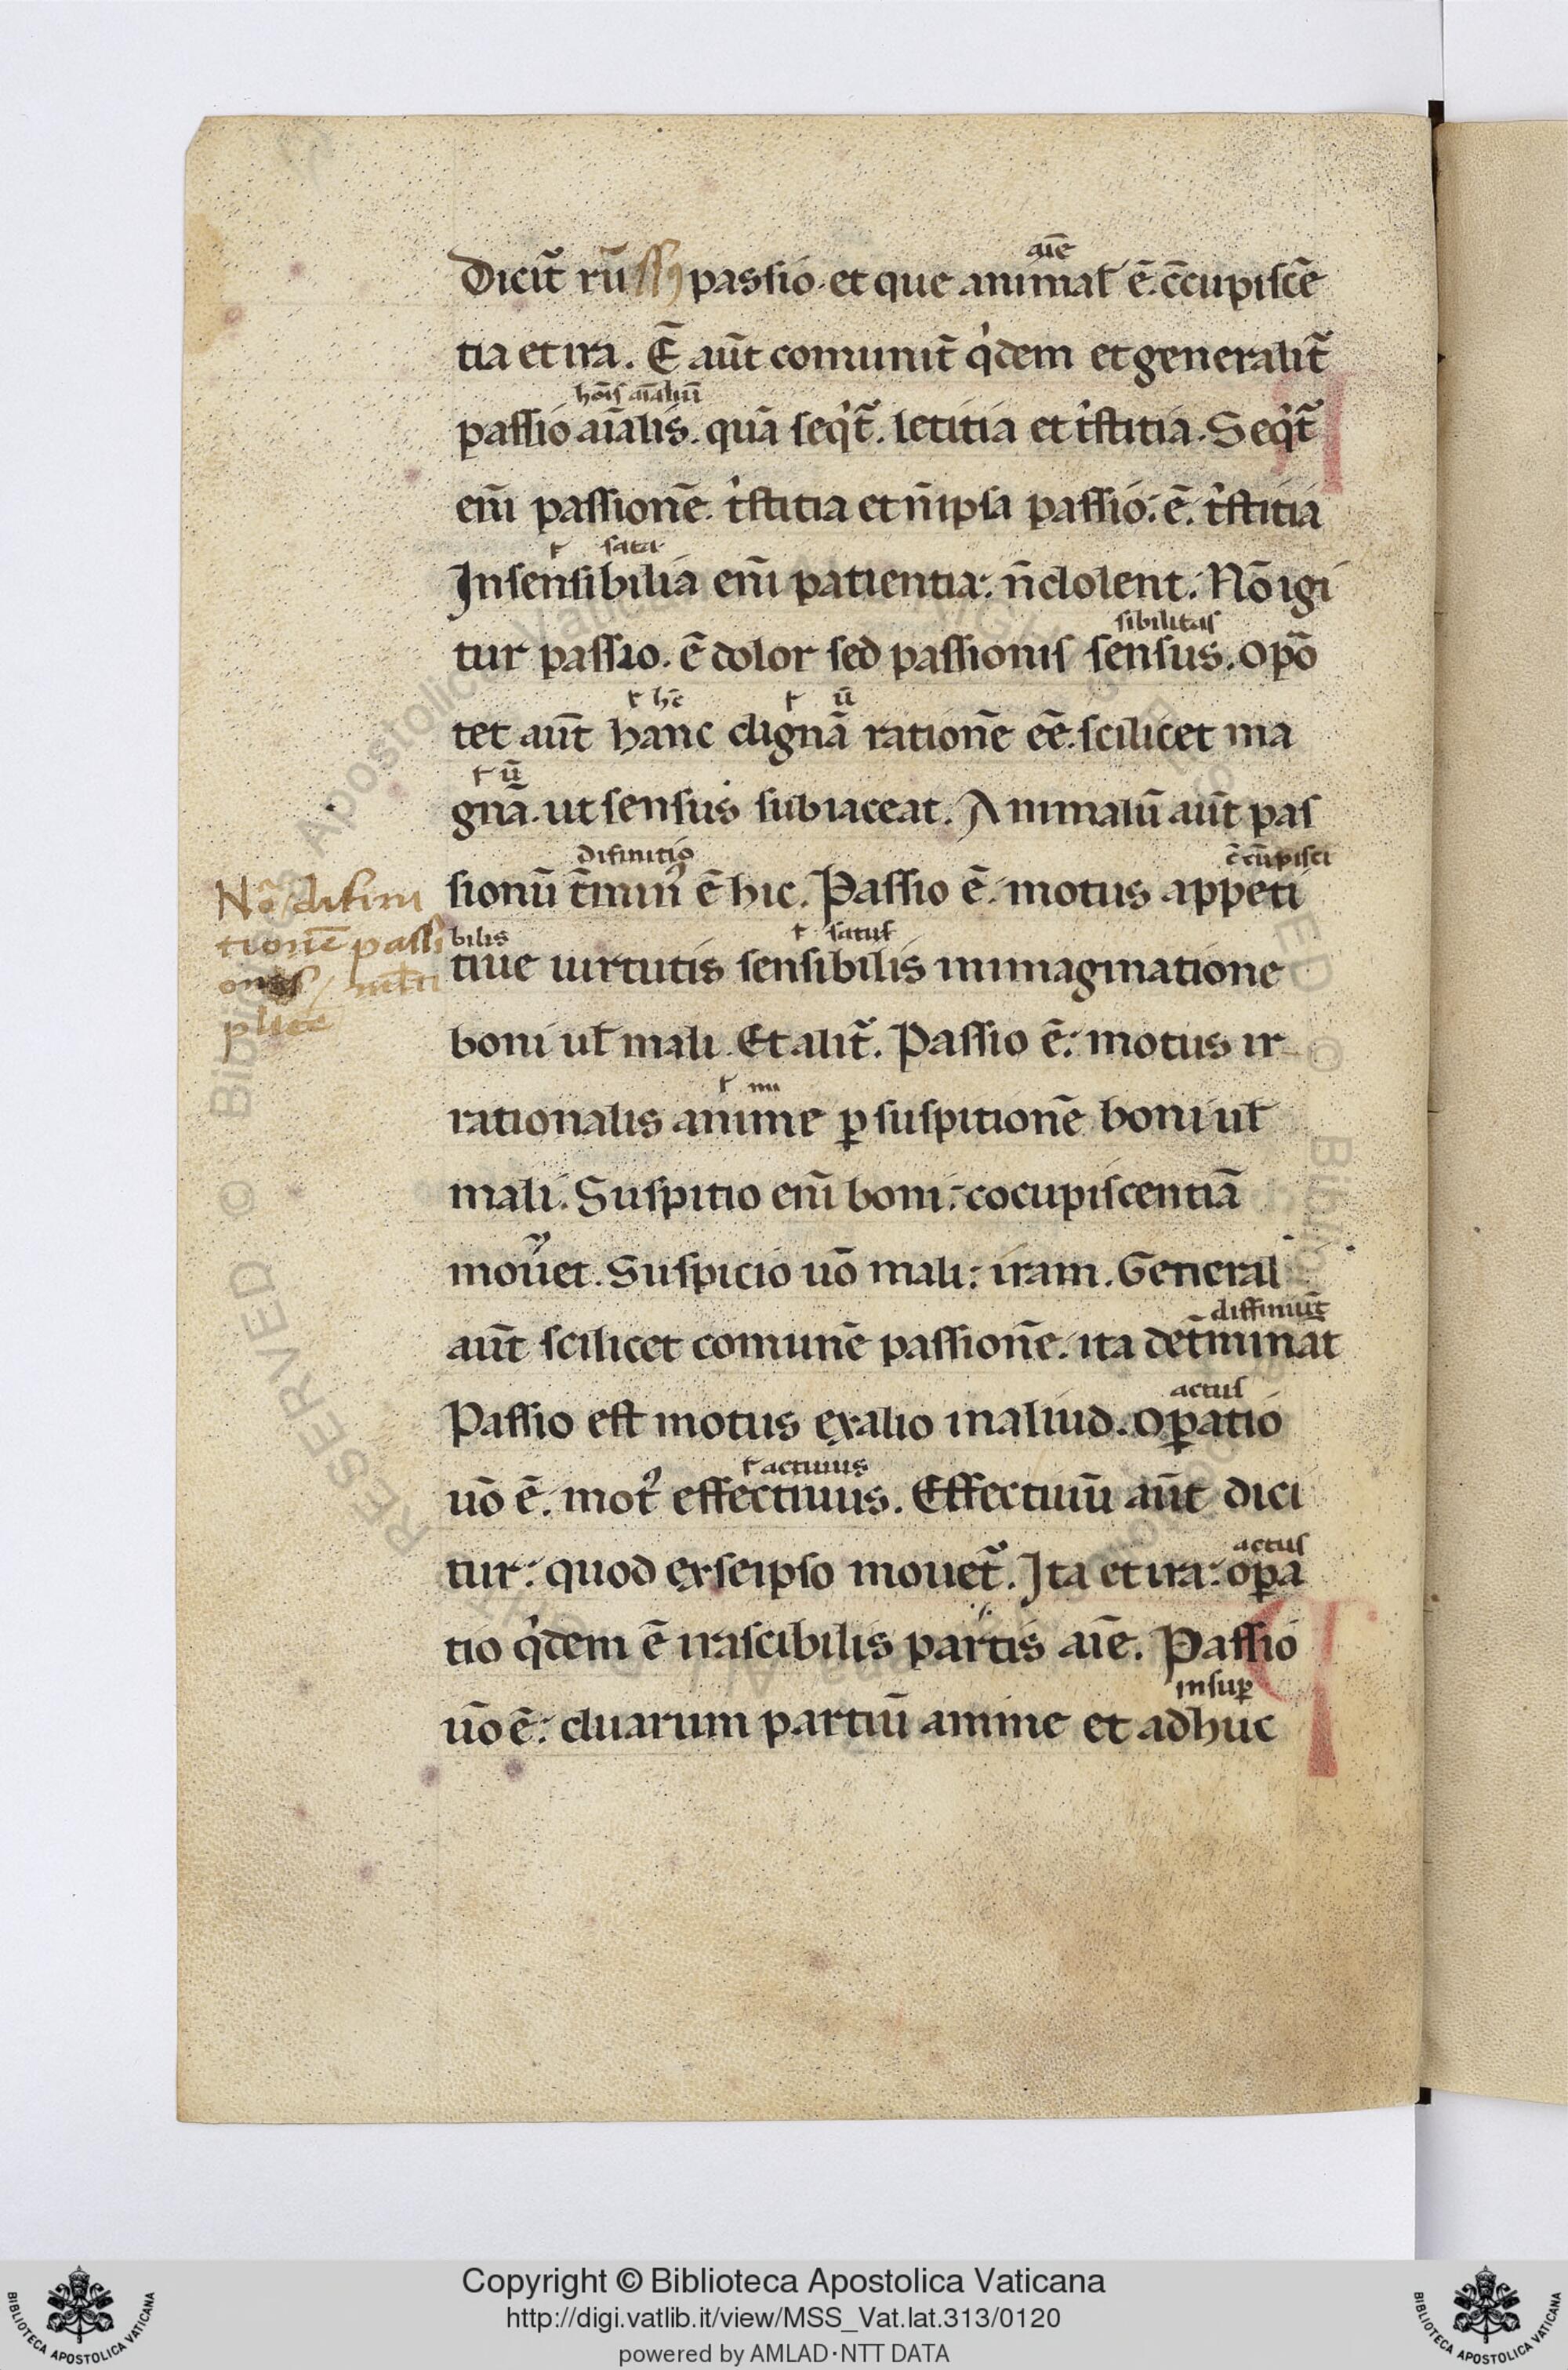 aīe
Dicit̃ rūſſꝰ passio. et que animaƚ ē. ɔ̄cupiſcē
tia et ira. Ē aūt comunit̃ qͥdem et generalit̃
hōiſ aīaliū
paſſio aīalis. quā ſeqͥt̃. letitia et tͥſtitia. Seqͥt̃
eni̅ paſſionē. tͥſtitia et n̄ ipſa paſſio: ē. tͥſtitia
ſata
Inſenſibilia eni̅ patientia: n̄ dolent. Nō igi
ſibilitaſ
tur paſſio. ē dolor ſed paſſioniſ ſenſus. opō
hc̄ ū
tet aūt hanc dignā rationē eē. ſcilicet ma
ū
gnā. ut ſenſus ſubiaceat. Animaliū aūt paſ
difinitio ɔ̄cūpiſci
ſionū t̄minꝰ ē hic. Paſſio ē: motus appeti
bilis ſatuſ
tiue uirtutis ſenſibilis inimaginatione
boni uƚ mali. Et alit̃. Paſſio ē: motus ir
rationalis anime ꝑ ſuſpitionē boni uƚ
mali. Suſpitio eni̅ boni: cocupiſcentiā
mouet. Suſpicio uō mali: iram. General
diffiniūt
aūt ſcilicet comunē paſſionē. ita det̄minat
actuſ
Paſſio eſt motus ex alio in aliud. oꝑatio
actiuus
uō ē. motꝰ effectiuus. Effectiuū aūt dici
actuſ
tur: quod ex ſeipſo mouet̃. Ita et ira: oꝑa
tio qͥdem ē iraſcibilis partis aīe. Paſſio
inſuꝑ
uō ē: duarum partiū anime et adhuc
Nō difini
tionē paſſi
oniſ mƚti
plice
Copyright © Biblioteca Apostolica Vaticana
http://digi.vatlib.it/view/MSS_Vat.lat.313/0120
powered by AMLAD·NTT DATA
BIBLIOTECA APOSTOLICA VATICANA
BIBLIOTECA APOSTOLICA VATICANA